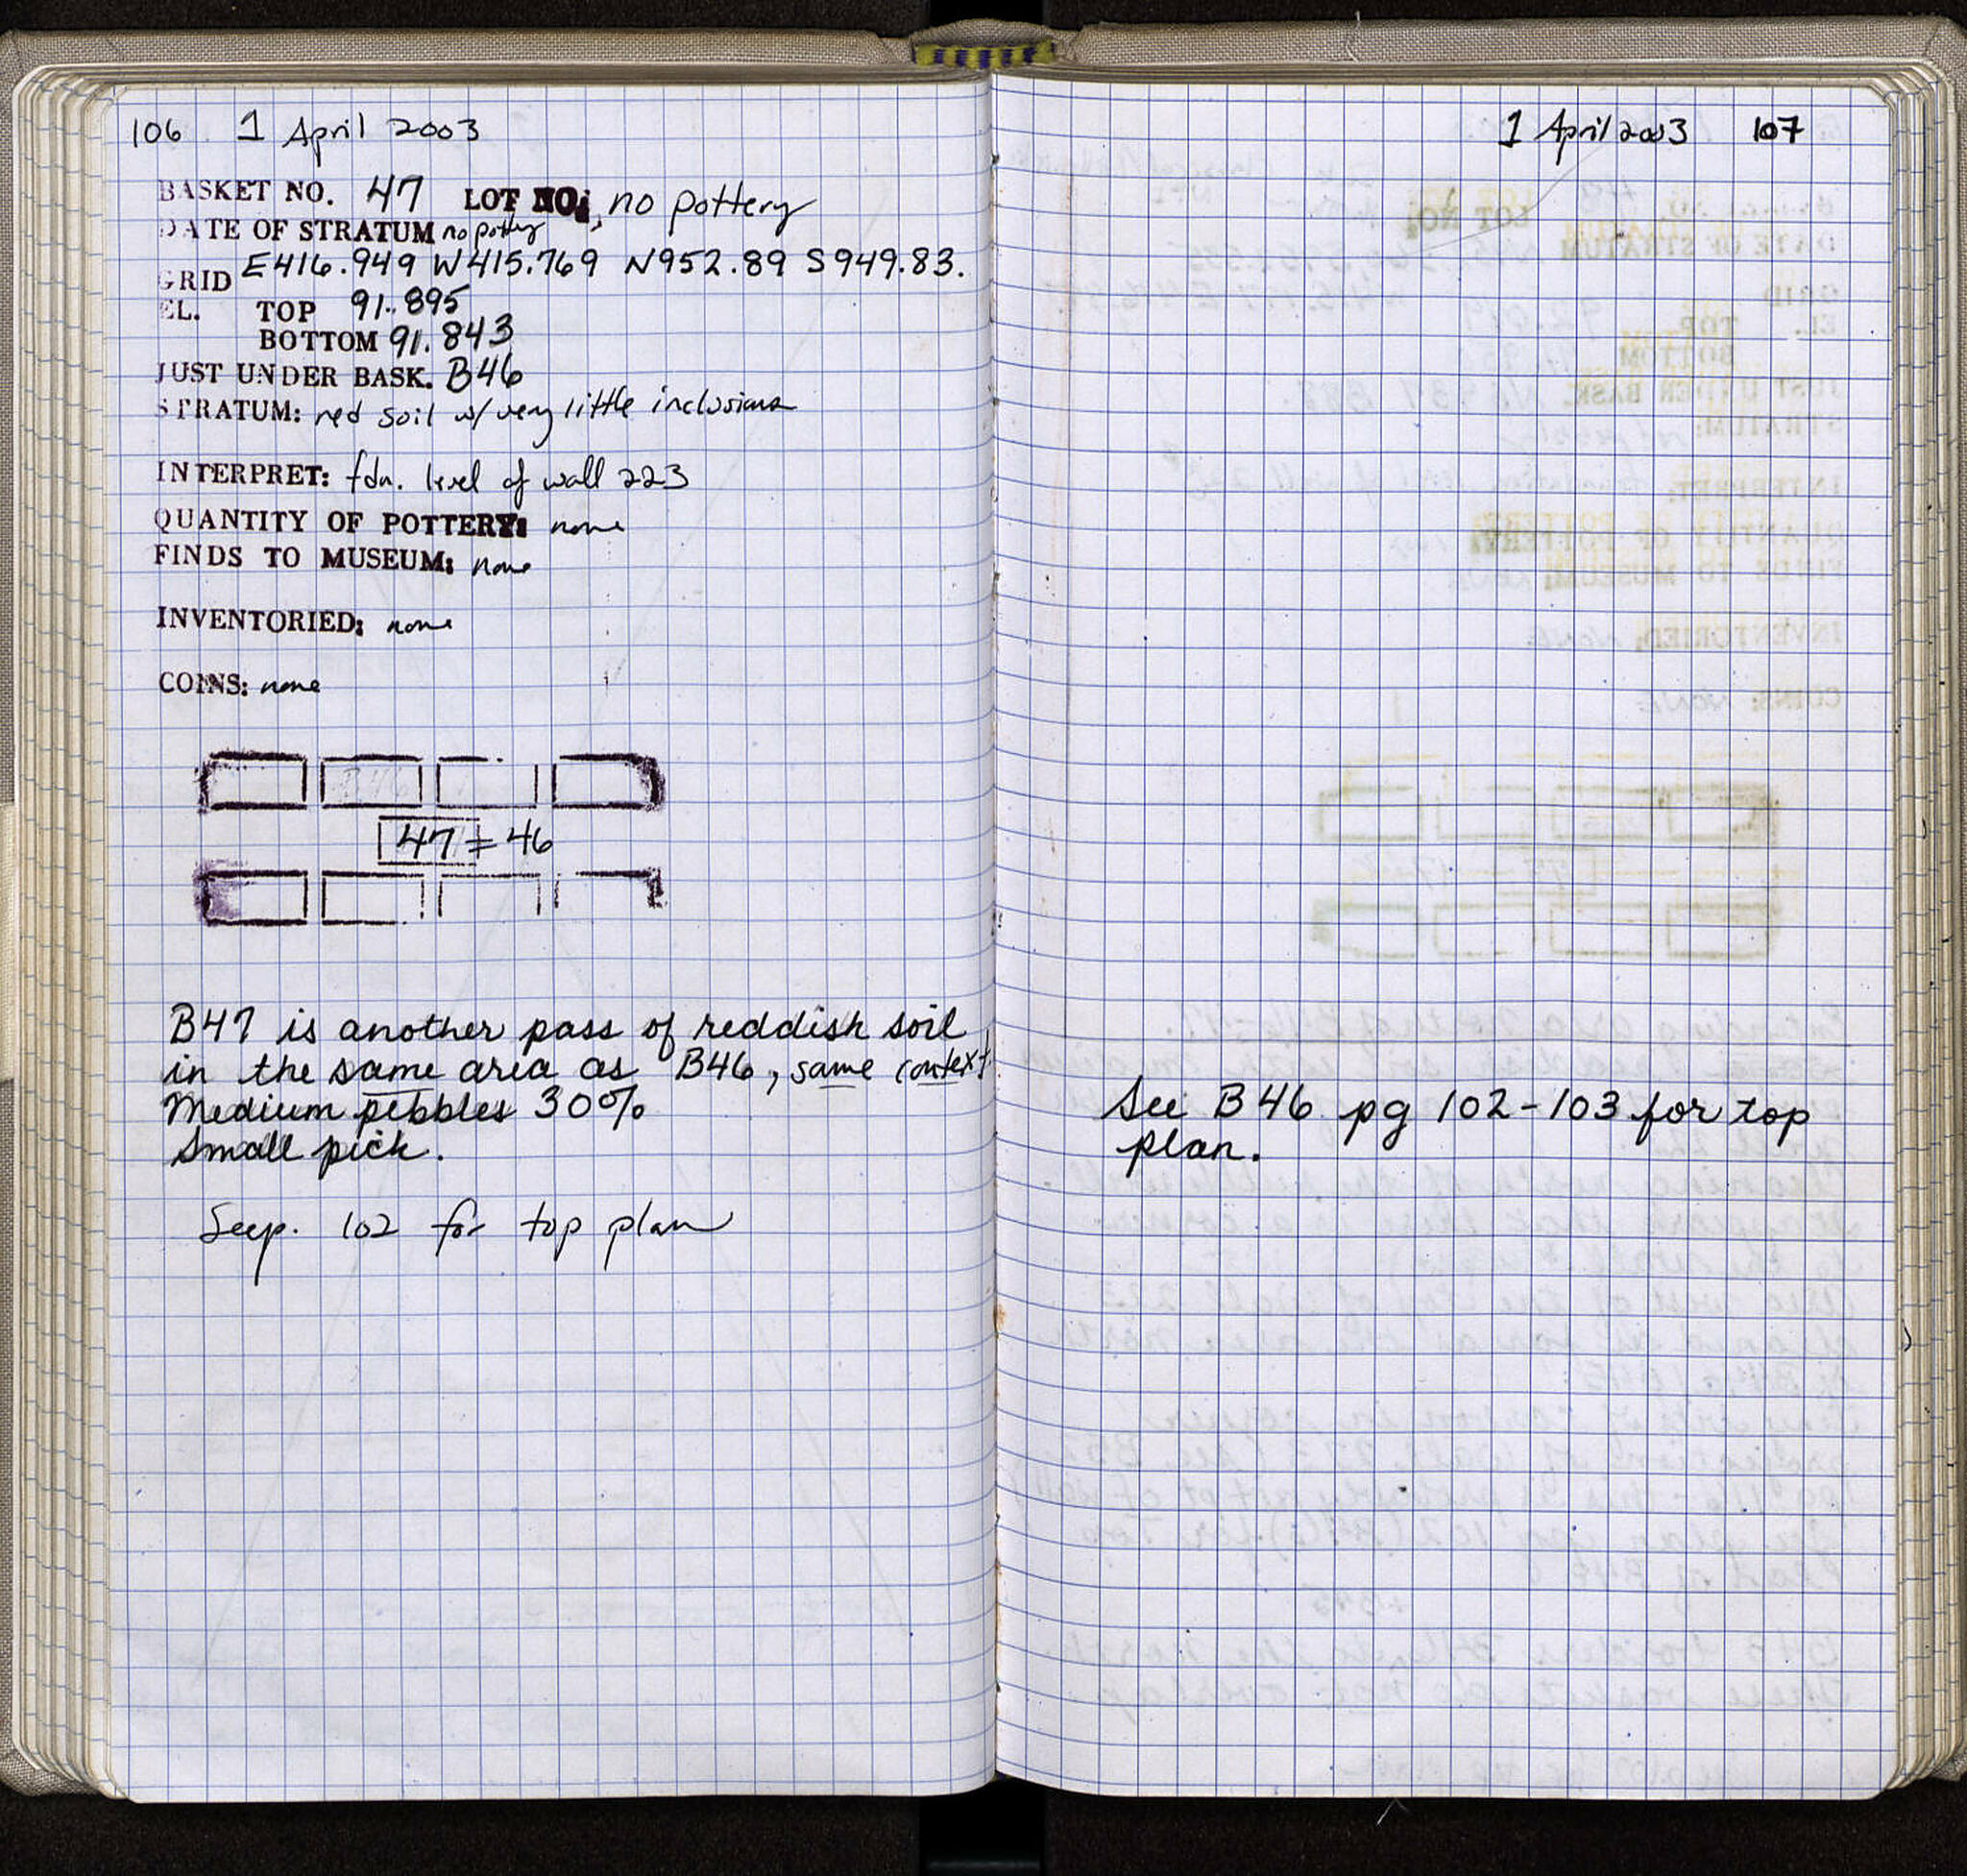 106 1 April 2003
BASKET NO. 47 LOT NO; no pottery
DATE OF STRATUM no pottery
GRID E416.949 W415.769 N952.89 S949.83.
EL. TOP 91.895
BOTTOM 91.843
JUST UNDER BASK. B46
STRATUM: red soil w/ very little inclusions
INTERPRET: fdn. level of wall 223
QUANTITY OF POTTERY: none
FINDS TO MUSEUM: none
INVENTORIED: none
COINS: none
B46
47 = 46
B47 is another pass of reddish soil
in the same area as B46, same context.
Medium pebbles 30%
Small pick.
See p. 102 for top plan
1 April 2003 107
See B46 pg 102-103 for top
plan.